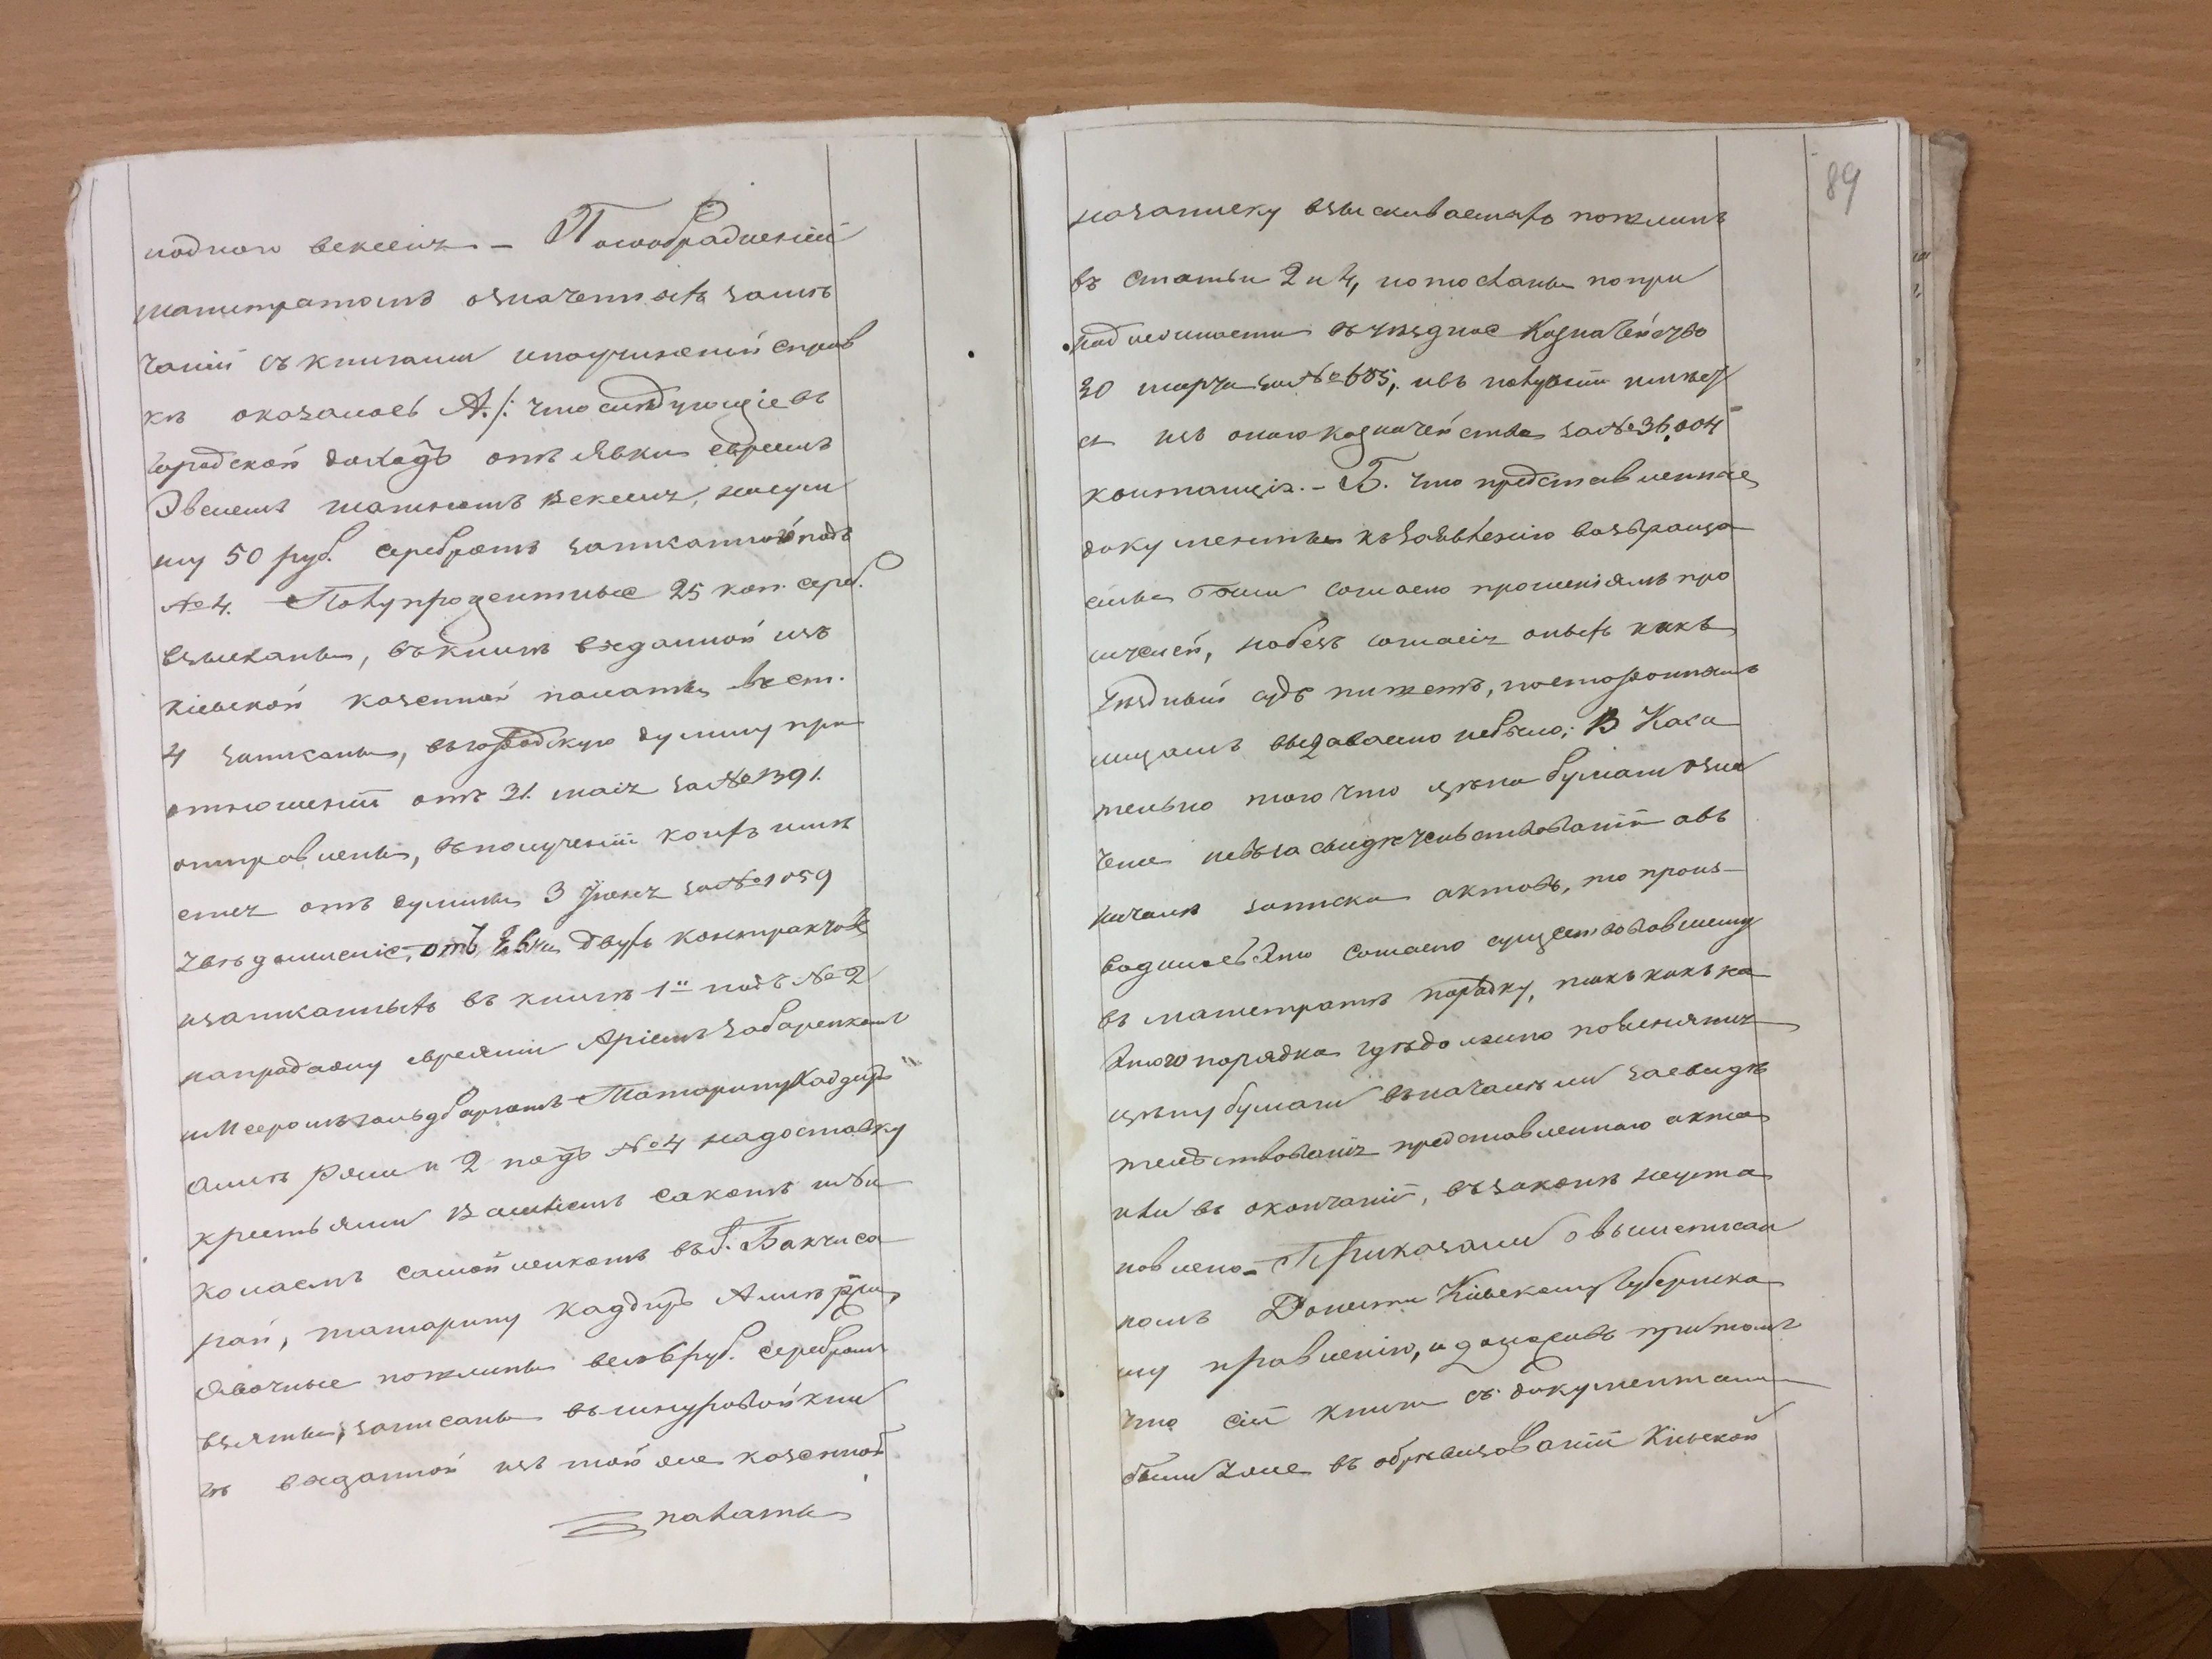 ноднаго векселя – По соображеніи
магистратомъ означенныхъ замѣ
чаній съ книгами и по учиненіи справ
кѣ оказалось А./: что слѣдующіе въ
городской доходъ отъ явки евреемъ
магнюмъ векселя, на сум
му 50 руб. серебромъ записанной подъ
№ 4. Полупроцентные 25 коп. сереб.
взысканы, въ книгѣ выданной изъ
Кіевской казенной палаты въ ст.
4 записаны, въ городскую думу при
отношеніи отъ 31. мая за № 1391.
отправлены, въ полученіи коихъ имѣ
ется отъ думы 3 Іюня за № 1059
увѣдомленіе, отъ явки двухъ контрактовъ
записанныхъ въ книгѣ 1й подъ № 2
на продажу евреями Аріемъ
и Мееромъ Гольдбаргомъ Татарину Кадыръ
Аметъ и 2 подъ № 4 на доставку
крестьянами
Самойленкомъ въ Г. Бакчиса
рай, татарину Кадыръ
Явочные пошлины всего 6 руб. серебромъ
взяты, записаны въ шнуровой кни
гѣ выданной изъ той же казенной
палаты
89
на записку взыскиваемыхъ пошлинъ
въ статьи 2 и 4, и отосланы по при
надлежности въ уѣздное Казначейство
30 марта за № 685, и въ полученіи имѣет
ся изъ онаго казначейства за № 36,004
квитанція. – Б. что представленные
документы къ засвидѣтельствованію возвраща
емы были согласно прошеніямъ про
сителей, но безъ согласія оныхъ какъ
Уѣздный судъ пишетъ, постороннимъ
лицамъ выдаваемо не было; В Каса
тельно того что цѣна бумаги озна
чена не въ засвидѣтельствованіи а въ
началѣ записки актовъ, то произ-
водилось это согласно существовавшему
въ магистратѣ порядку, такъ какъ на
этого порядка гдѣ должно поясняться
цѣну бумаги въ началѣ ли засвидѣ
тельствованія представленнаго акта
или въ окончаніи, въ законѣ не уста
новлено – Приказали о вышеписан
номъ Донести Кіевскому Губернско
му правленію, и доложивъ при томъ
что сіи книги съ документами
были уже въ обревизованіи Кіевской